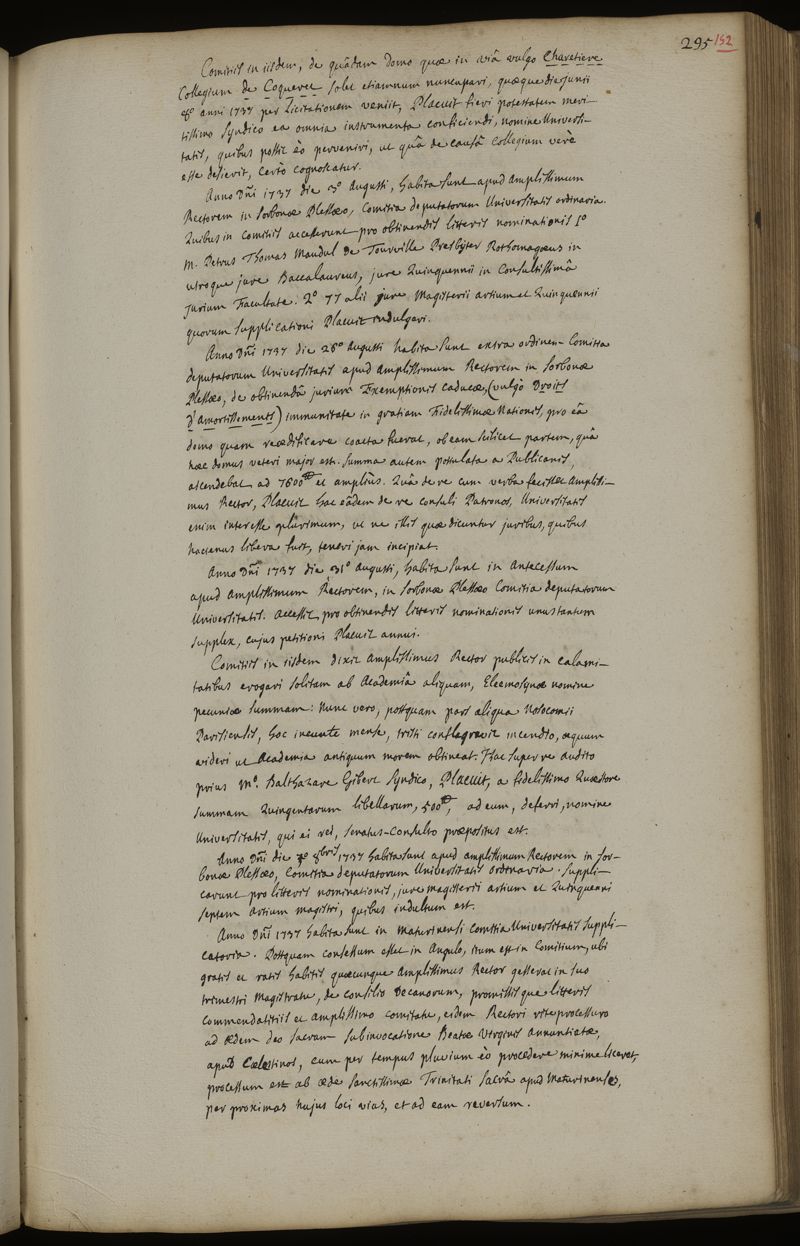 295 152
Comitiis in iisdem, de quâdam Domo quæ in viâ vulgo Charetiere
Collegium de Coquerel solet etiamnum nuncupari, quæque die Junii
8â anni 1737 per Licitationem veniit, Placuit fieri potestatem meri-
tissimo Syndico ea omnia instrumenta conficiendi, nomine Universi-
tatis, quibus possit eò perveniri, ut quâ de causâ Collegium verè
esse desierit, certò cognoscatur.
Anno Dñi 1737 die 3â Augusti, habita sunt apud Amplissimum
Rectorem in Sorbonæ Plessæo, Comitia deputatorum Universitatis ordinaria.
Quibus in Comitiis accesserunt pro obtinendis litteris nominationis 1º
M. Petrus Thomas Maudul de Tourville Presbyter Rothomagæus in
utroque jure Baccalaureus, jure Quinquennii in Consultissimâ
Jurium Facultate. 2º 77 alii jure Magisterii artium et Quinquennii
quorum supplicationi Placuit indulgeri.
Anno Dñi 1737 die 26â Augusti habita sunt extra ordinem Comitia
deputatorum Universitatis apud Amplissimum Rectorem in Sorbonæ
Plessæo, de obtinendâ jurium Exemptionis caducæ, (vulgò Droits
d'Amortissements) immunitate in gratiam Fidelissimæ Nationis, pro eâ
domo quam reædificare coacta fuerat, ob eam scilicet partem, quâ
hæc domus veteri major est. Summa autem postulata a Publicanis,
ascendebat ad 7600 et ampliùs. Quâ de re cum verba fecisset Amplissi-
mus Rector, Placuit hac eâdem de re consuli Patronos, Universitatis
enim interesse plurimum, ut ne illis quæ dicuntur juribus, quibus
hactenus libera fuit, teneri jam incipiat.
Anno Dñi 1737 die 31â Augusti, habita sunt in Antecessum
apud Amplissimum Rectorem, in Sorbonæ Plessæo Comitia deputatorum
Universitatis. Accessit pro obtinendis litteris nominationis unus tantum
supplex, cujus petitioni Placuit annui.
Comitiis in iisdem dixit Amplissimus Rector publicis in calami-
tatibus erogari solitam ab Academiâ aliquam, Eleemosynæ nomine
pecuniæ summam: nunc vero, postquam pars aliqua Nosocomii
Parisiensis, hoc ineunte mense, tristi conflagravit incendio, æquum
videri ut Academia antiquum morem obtineat. Hac super re audito
prius Mº. Balthazare Gibert Syndico, Placuit, a fidelissimo Quæstore
summam Quingentarum libellarum, 500, ad eum, deferri, nomine
Universitatis, qui ei rei, Senatus-Consulto præpositus est.
Anno Dñi die 7â 8bris 1737 habita sunt apud amplissimum Rectorem in Sor-
bonæ Plessæo, Comitia deputatorum Universitatis ordinaria. Suppli-
carunt pro litteris nominationis, jure magisterii artium et Quinquenni
septem artium magistri, quibus indultum est.
Anno Dñi 1737 habita sunt in Maturinensi comitia Universitatis suppli-
catoria. Postquam consessum esset in Angulo, itum est in Comitium, ubi
gratis et ratis habitis quæcunque Amplissimus Rector gesserat in suo
trimestri Magistratu, de consilio Decanorum, promissisque litteris
commendatitiis et amplissimo comitatu, eidem Rectori rite processuro
ad ædem deo sacram sub invocatione Beatæ Virginis annuntiatæ,
apud Cælestinos, cum per tempus pluvium eò procedere minime liceret,
processum est ab æde sanctissimæ Trinitati sacrâ apud Maturinenses,
per proximas hujus loci vias, et ad eam reversum.